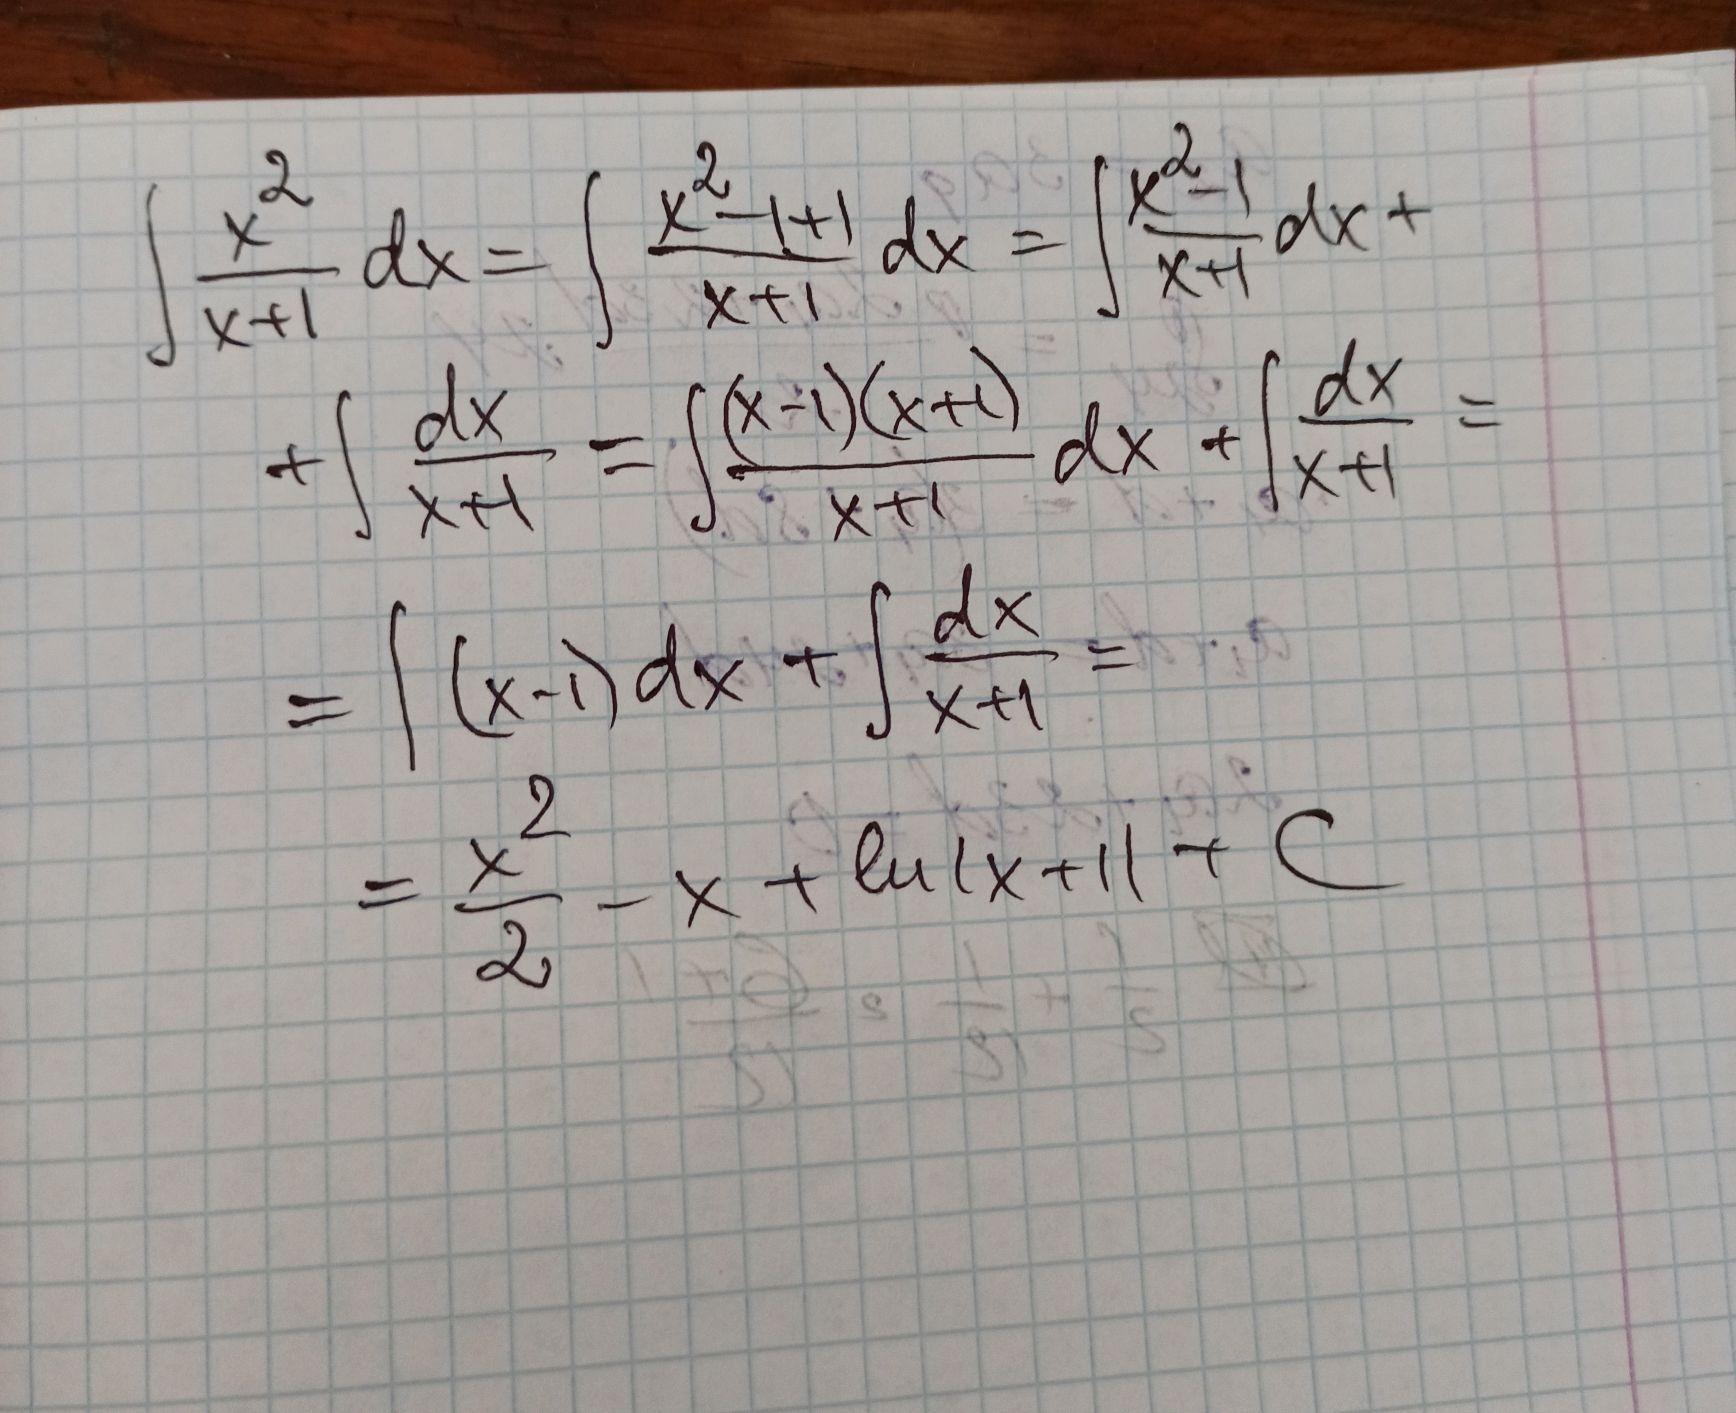 ∫ x²/(x+1) dx = ∫ (x²-1+1)/(x+1) dx = ∫ (x²-1)/(x+1) dx +
+ ∫ dx/(x+1) = ∫ (x-1)(x+1)/(x+1) dx + ∫ dx/(x+1) =
= ∫ (x-1) dx + ∫ dx/(x+1) =
= x²/2 - x + ln|x+1| + C